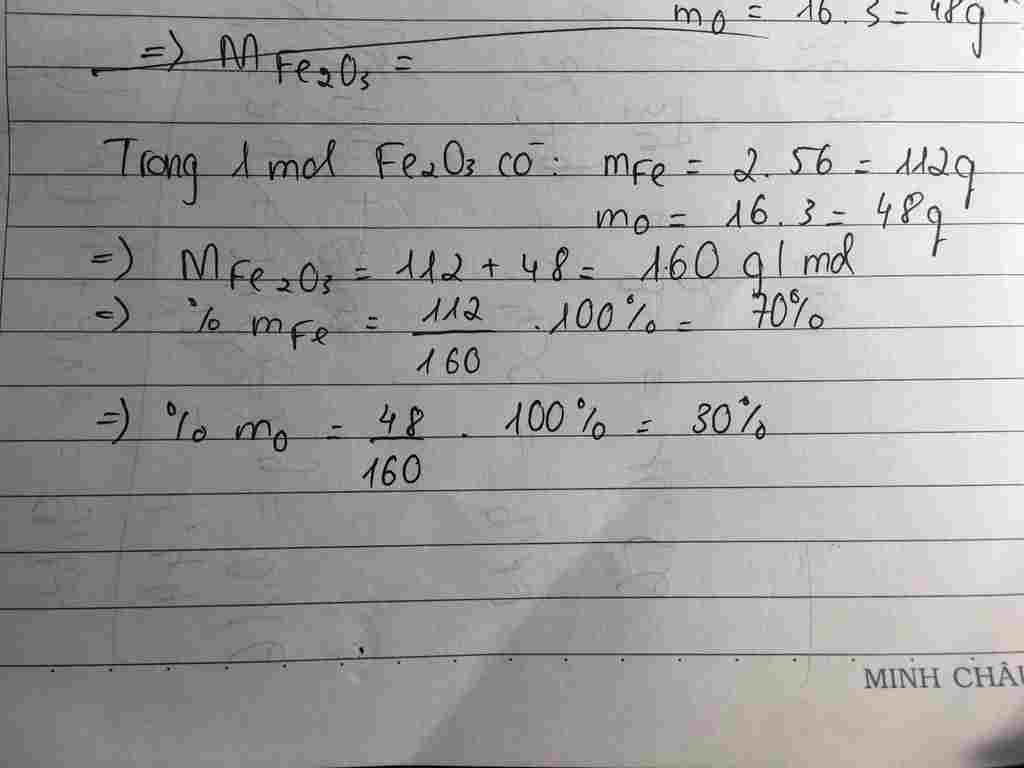 mO = 16.3 = 48g
=) M Fe2O3 =
Trong 1 mol Fe2O3 có: mFe = 2.56 = 112g
mO = 16.3 = 48g
=) MFe2O3 = 112 + 48 = 160 g/mol
=) % mFe = 112/160 .100% = 70%
=) % mO = 48/160 . 100% = 30%
MINH CHÂU